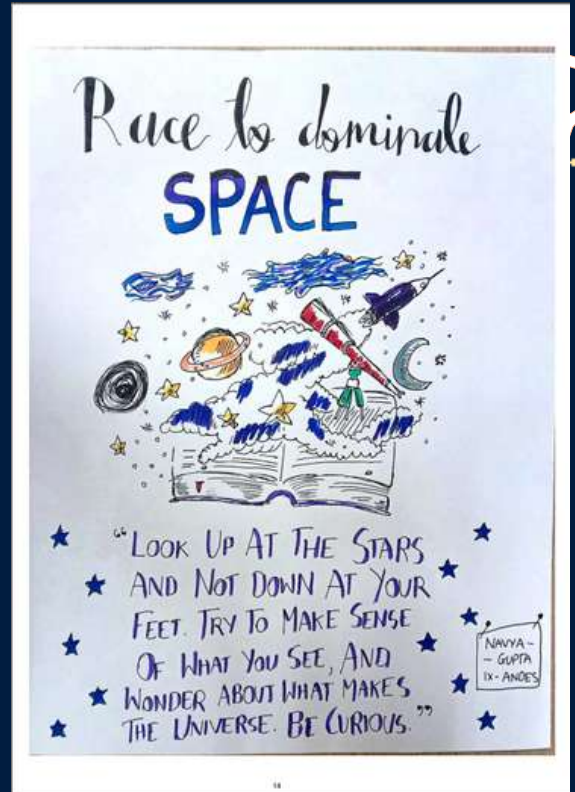 Race to dominate
SPACE
“LOOK UP AT THE STARS
AND NOT DOWN AT YOUR
FEET. TRY TO MAKE SENSE
OF WHAT YOU SEE, AND
WONDER ABOUT WHAT MAKES
THE UNIVERSE. BE CURIOUS.”
NAVYA -
- GUPTA
IX - ANDES